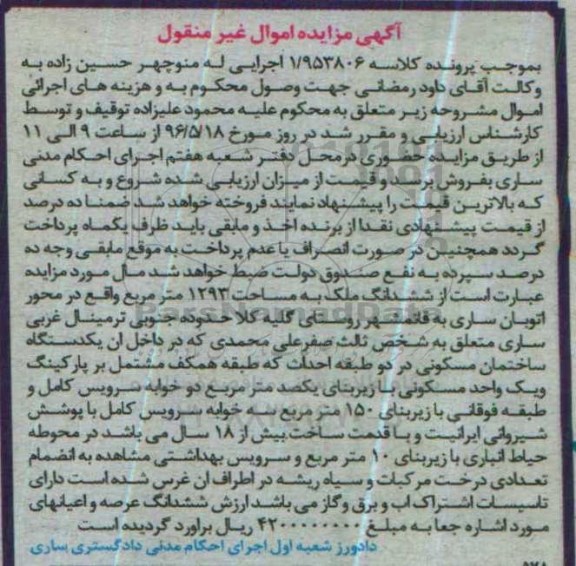 آگهی مزایده اموال غیر منقول
بموجب پرونده کلاسه ۱/۹۵۳۸۰۶ اجرایی له منوچهر حسین زاده به
وکالت آقای داود رمضانی جهت وصول محکوم به و هزینه های اجرائی
اموال مشروحه زیر متعلق به محکوم علیه محمود علیزاده توقیف و توسط
کارشناس ارزیابی و مقرر شد در روز مورخ ۹۶/۵/۱۸ از ساعت ۹ الی ۱۱
از طریق مزایده حضوری درمحل دفتر شعبه هفتم اجرای احکام مدنی
ساری بفروش برسد و قیمت از میزان ارزیابی شده شروع و به کسانی
که بالاترین قیمت را پیشنهاد نمایند فروخته خواهد شد ضمنا ده درصد
از قیمت پیشنهادی نقدا از برنده اخذ و مابقی باید ظرف یکماه پرداخت
گردد همچنین در صورت انصراف یا عدم پرداخت به موقع مابقی وجه ده
درصد سپرده به نفع صندوق دولت ضبط خواهد شد مال مورد مزایده
عبارت است از ششدانگ ملک به مساحت ۱۲۹۳ متر مربع واقع در محور
اتوبان ساری به قائمشهر روستای گلیه کلا حدوده جنوبی ترمینال غربی
ساری متعلق به شخص ثالث صفرعلی محمدی که در داخل ان یکدستگاه
ساختمان مسکونی در دو طبقه احداث که طبقه همکف مشتمل بر پارکینگ
ویک واحد مسکونی با زیربنای یکصد متر مربع دو خوابه سرویس کامل و
طبقه فوقانی با زیربنای ۱۵۰ متر مربع سه خوابه سرویس کامل با پوشش
شیروانی ایرانیت و با قدمت ساخت بیش از ۱۸ سال می باشد در محوطه
حیاط انباری با زیربنای ۱۰ متر مربع و سرویس بهداشتی مشاهده به انضمام
تعدادی درخت مرکبات و سیاه ریشه در اطراف ان غرس شده است دارای
تاسیسات اشتراک اب و برق وگاز می باشد ارزش ششدانگ عرصه و اعیانهای
مورد اشاره جمعا به مبلغ ۴۲۰۰۰۰۰۰۰۰ ریال براورد گردیده است
دادورز شعبه اول اجرای احکام مدنی دادگستری ساری